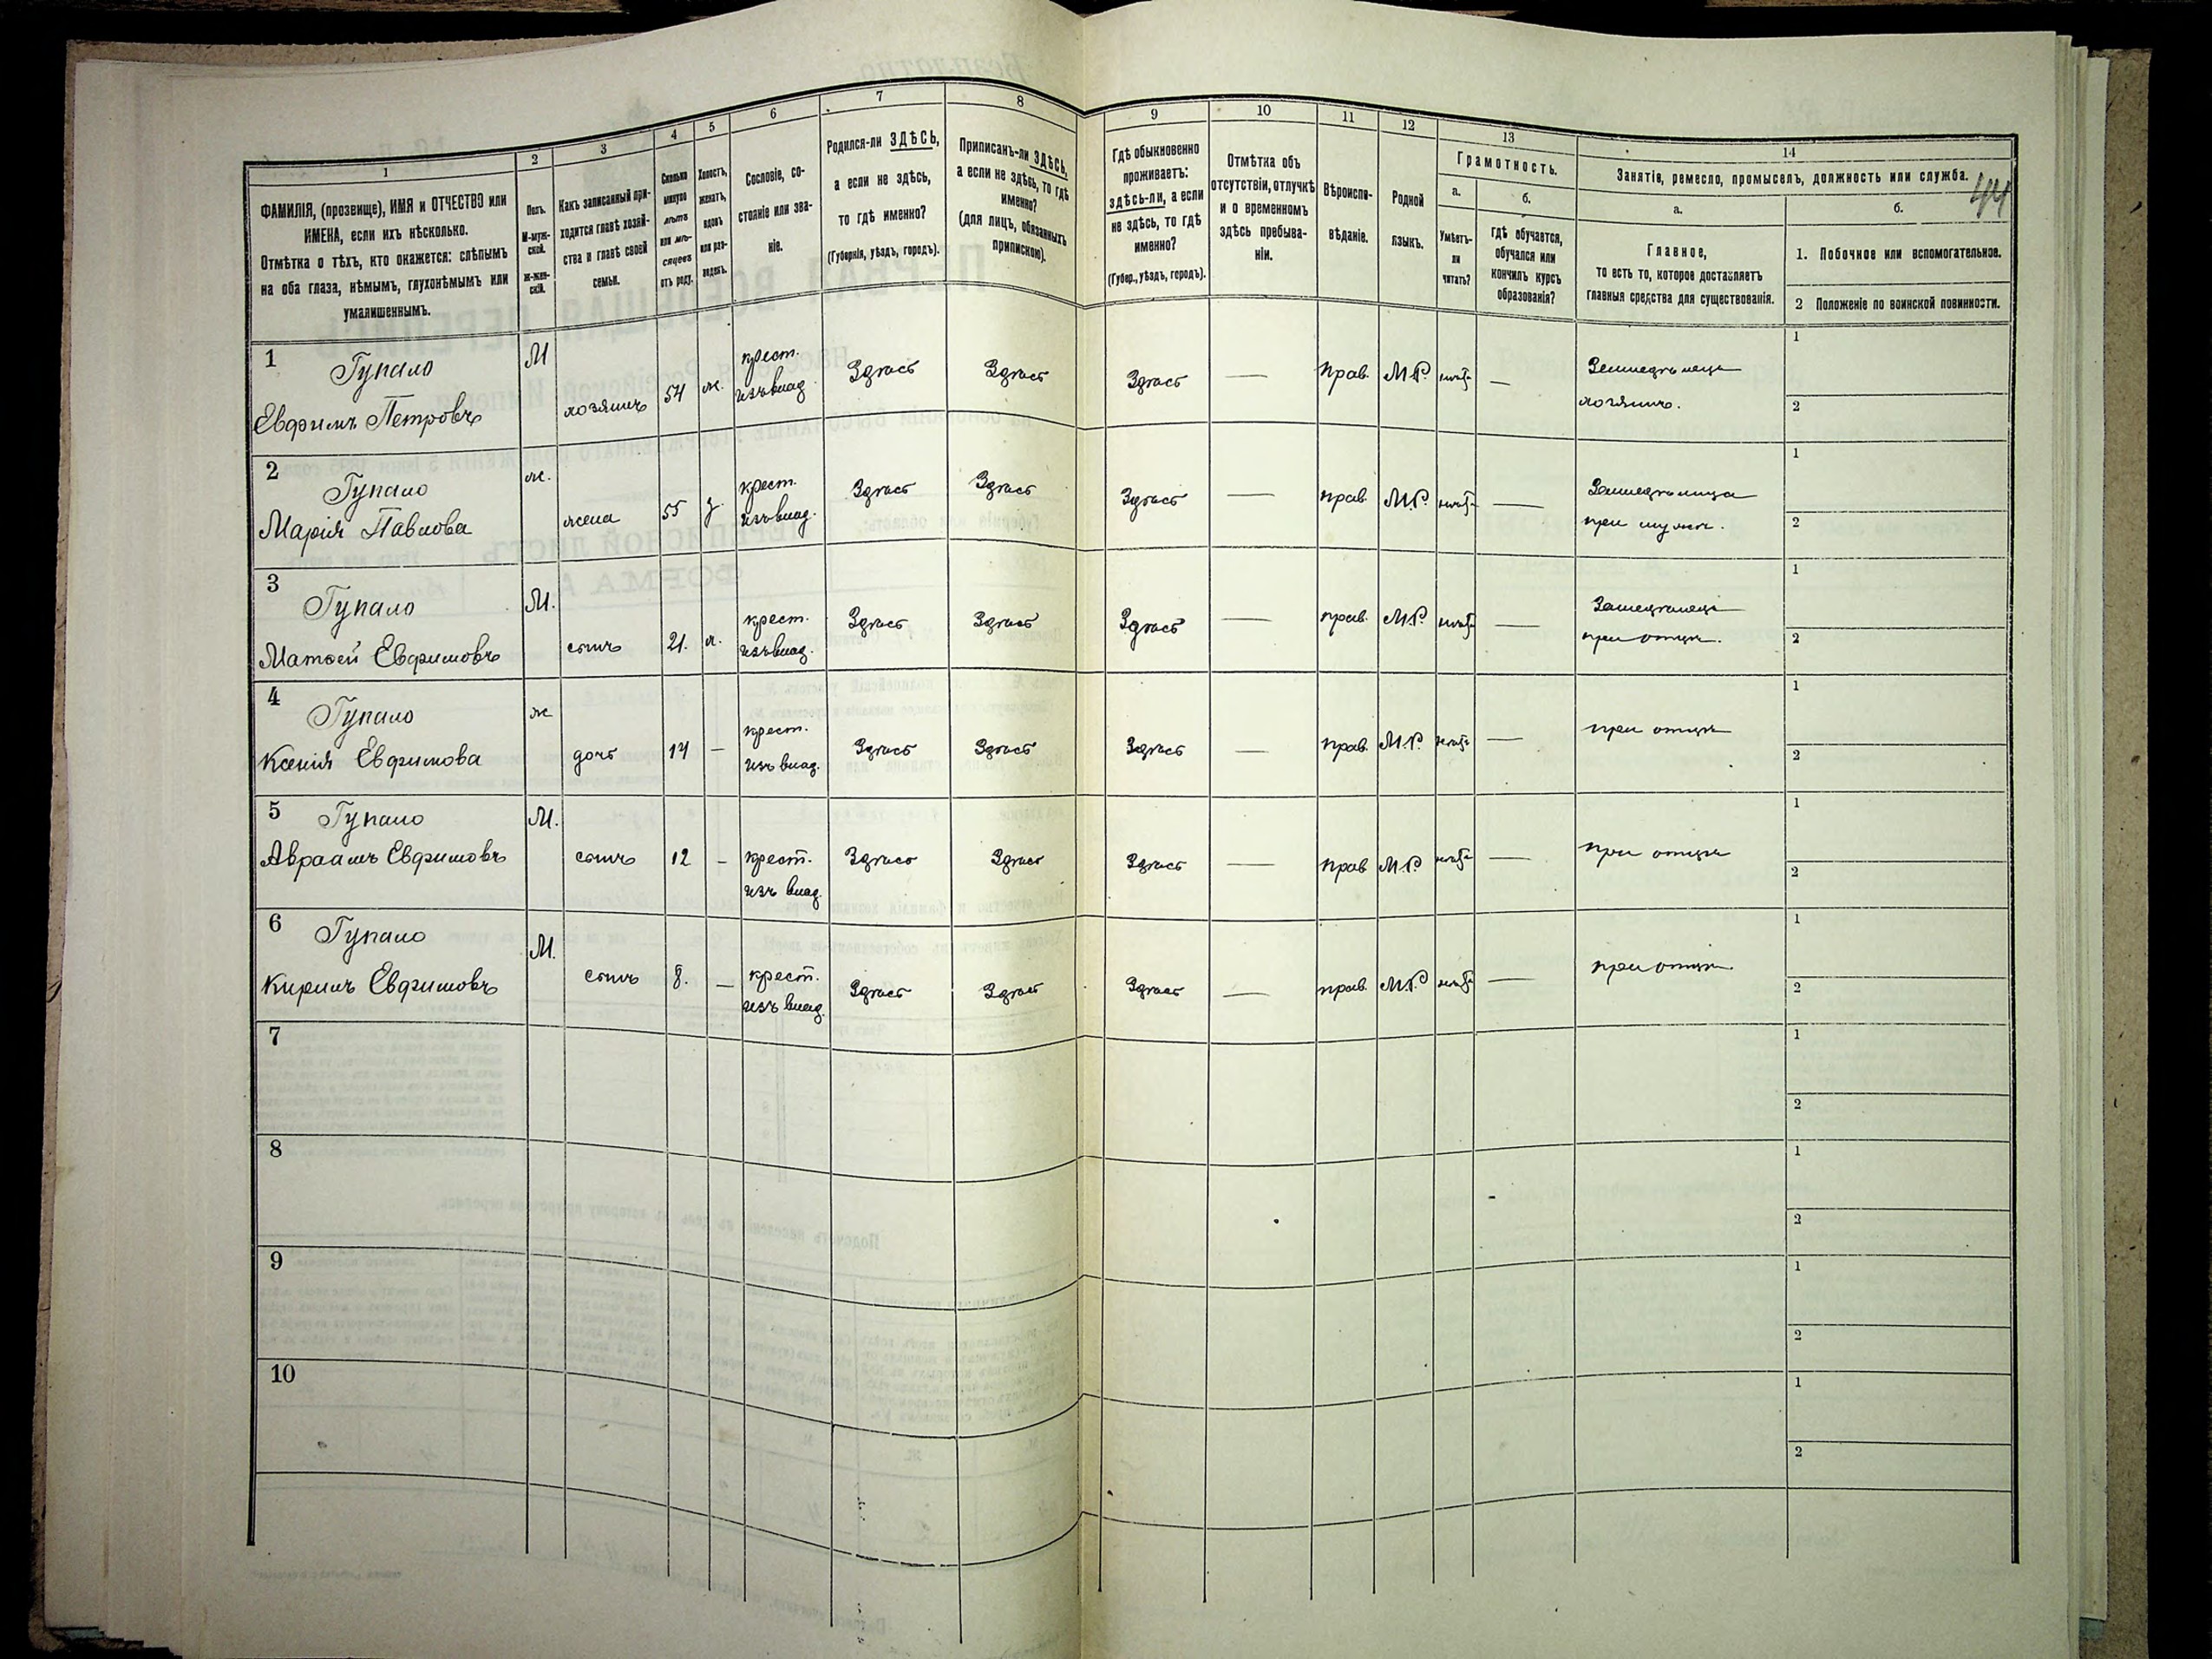 1 2 3 4 5 6 7 8 9 10 11 12 13 14
ФАМИЛІЯ, (прозвище), ИМЯ и ОТЧЕСТВО или
ИМЕНА, если ихъ нѣсколько.
Отмѣтка о тѣхъ, кто окажется: слѣпымъ
на оба глаза, нѣмымъ, глухонѣмымъ или
умалишеннымъ.
Полъ.
М-муж-
ской.
Ж-жен-
скій.
Какъ записанный при-
ходится главѣ хозяй-
ства и главѣ своей
семьи.
Сколько
минуло
лѣтъ
или мѣ-
сяцевъ
отъ роду.
Холостъ,
женатъ,
вдовъ
или раз-
веденъ.
Сословіе, со-
стояніе или зва-
ніе.
Родился-ли ЗДѢСЬ,
а если не здѣсь,
то гдѣ именно?
(Губернія, уѣздъ, городъ).
Приписанъ-ли ЗДѢСЬ,
а если не здѣсь, то гдѣ
именно?
(для лицъ, обязанныхъ
припискою).
Гдѣ обыкновенно
проживаетъ:
здѣсь-ли, а если
не здѣсь, то гдѣ
именно?
(Губер., уѣздъ, городъ).
Отмѣтка объ
отсутствіи, отлучкѣ
и о временномъ
здѣсь пребыва-
ніи.
Вѣроиспо-
вѣданіе.
Родной
языкъ.
Грамотность.
а.
Умѣетъ-
ли
читать?
б.
гдѣ обучается,
обучался или
кончилъ курсъ
образованія?
Занятіе, ремесло, промыселъ, должность или служба.
44
а.
Главное,
то есть то, которое доставляетъ
главныя средства для существованія.
б.
1. Побочное или вспомогательное.
2 Положеніе по воинской повинности.
1 Гупало М крест. Здѣсь Здѣсь Здѣсь — прав. М.Р. — 1
Евфимъ Петровъ хозяинъ 54 ж. изъ влад. Земледѣлецъ
хозяинъ. 2
2 Гупало ж. крест. Здѣсь Здѣсь Здѣсь — прав. М.Р. — 1
Марія Павлова жена 55 з. изъ влад.
при мужѣ. 2
3 Гупало М. крест. Здѣсь Здѣсь Здѣсь — прав. М.Р. — 1
Матѳей Евфимовъ сынъ 21. х. изъ влад.
при отцѣ. 2
4 Гупало ж крест. при отцѣ 1
Ксенія Евфимова дочь 14 — изъ влад. Здѣсь Здѣсь Здѣсь — прав. М.Р. — 2
5 Гупало М. при отцѣ 1
Авраамъ Евфимовъ сынъ 12 — крест. Здѣсь Здѣсь Здѣсь — прав М.Р. —
изъ влад. 2
6 Гупало М. при отцѣ. 1
Кирилъ Евфимовъ сынъ 8. — крест. Здѣсь Здѣсь Здѣсь — прав. М.Р. —
изъ влад. 2
7 1
2
8 1
2
9 1
2
10 1
2